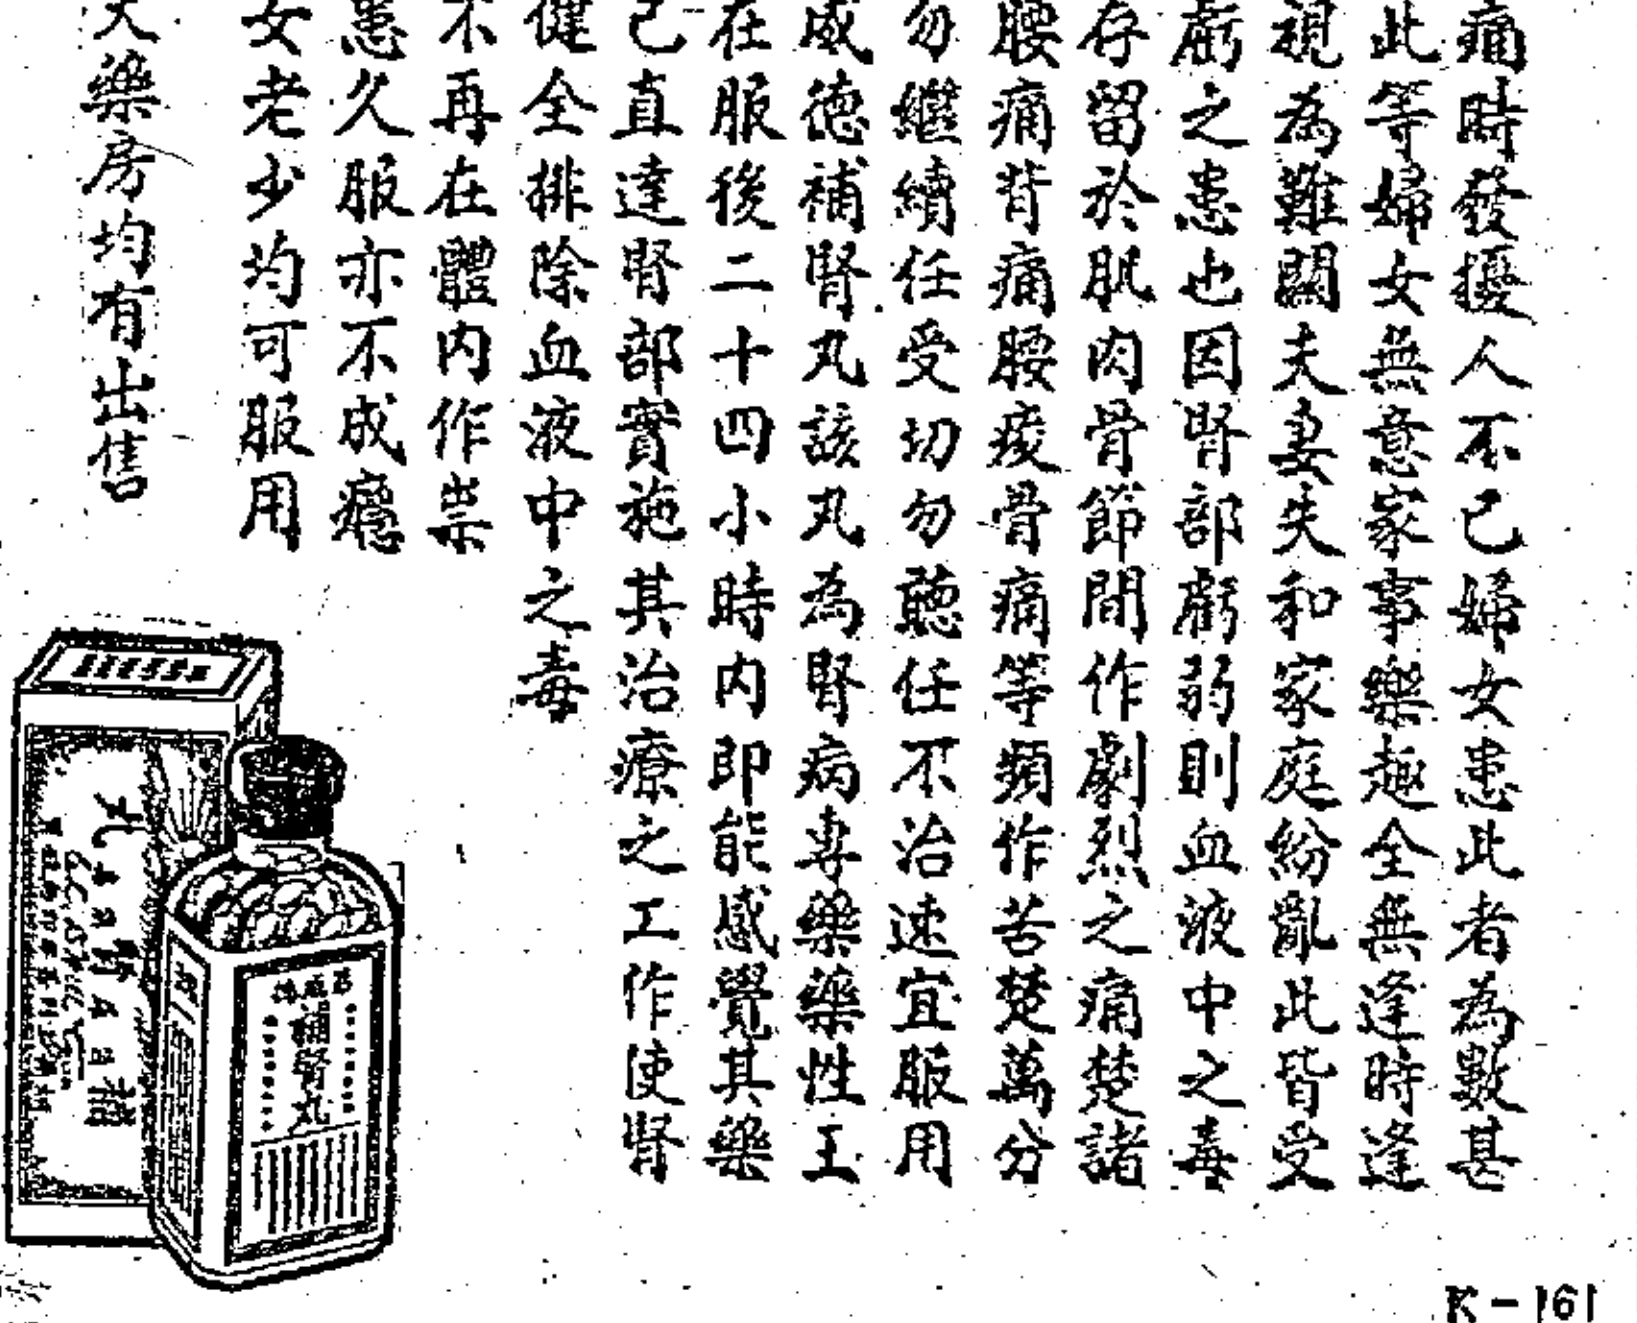 痛時發擾人不已婦女患此者為數甚
此等婦女無意家事樂趣全無逢時逢
視為難關夫妻失和家庭紛亂此皆受
虧之患也因腎部虧弱則血液中之毒
存留於肌肉骨節間作劇烈之痛楚諸
腰痛背痛腰痠骨痛等頻作苦楚萬分
勿繼續任受切勿聽任不治速宜服用
威德補腎丸該丸為腎病專藥藥性王
在服後二十四小時内即能感覺其藥
己直達腎部實施其治療之工作使腎
健全排除血液中之毒
不再在體内作祟
患久服亦不成癮
女老少均可服用
大藥房均有出售
補腎丸
K-161